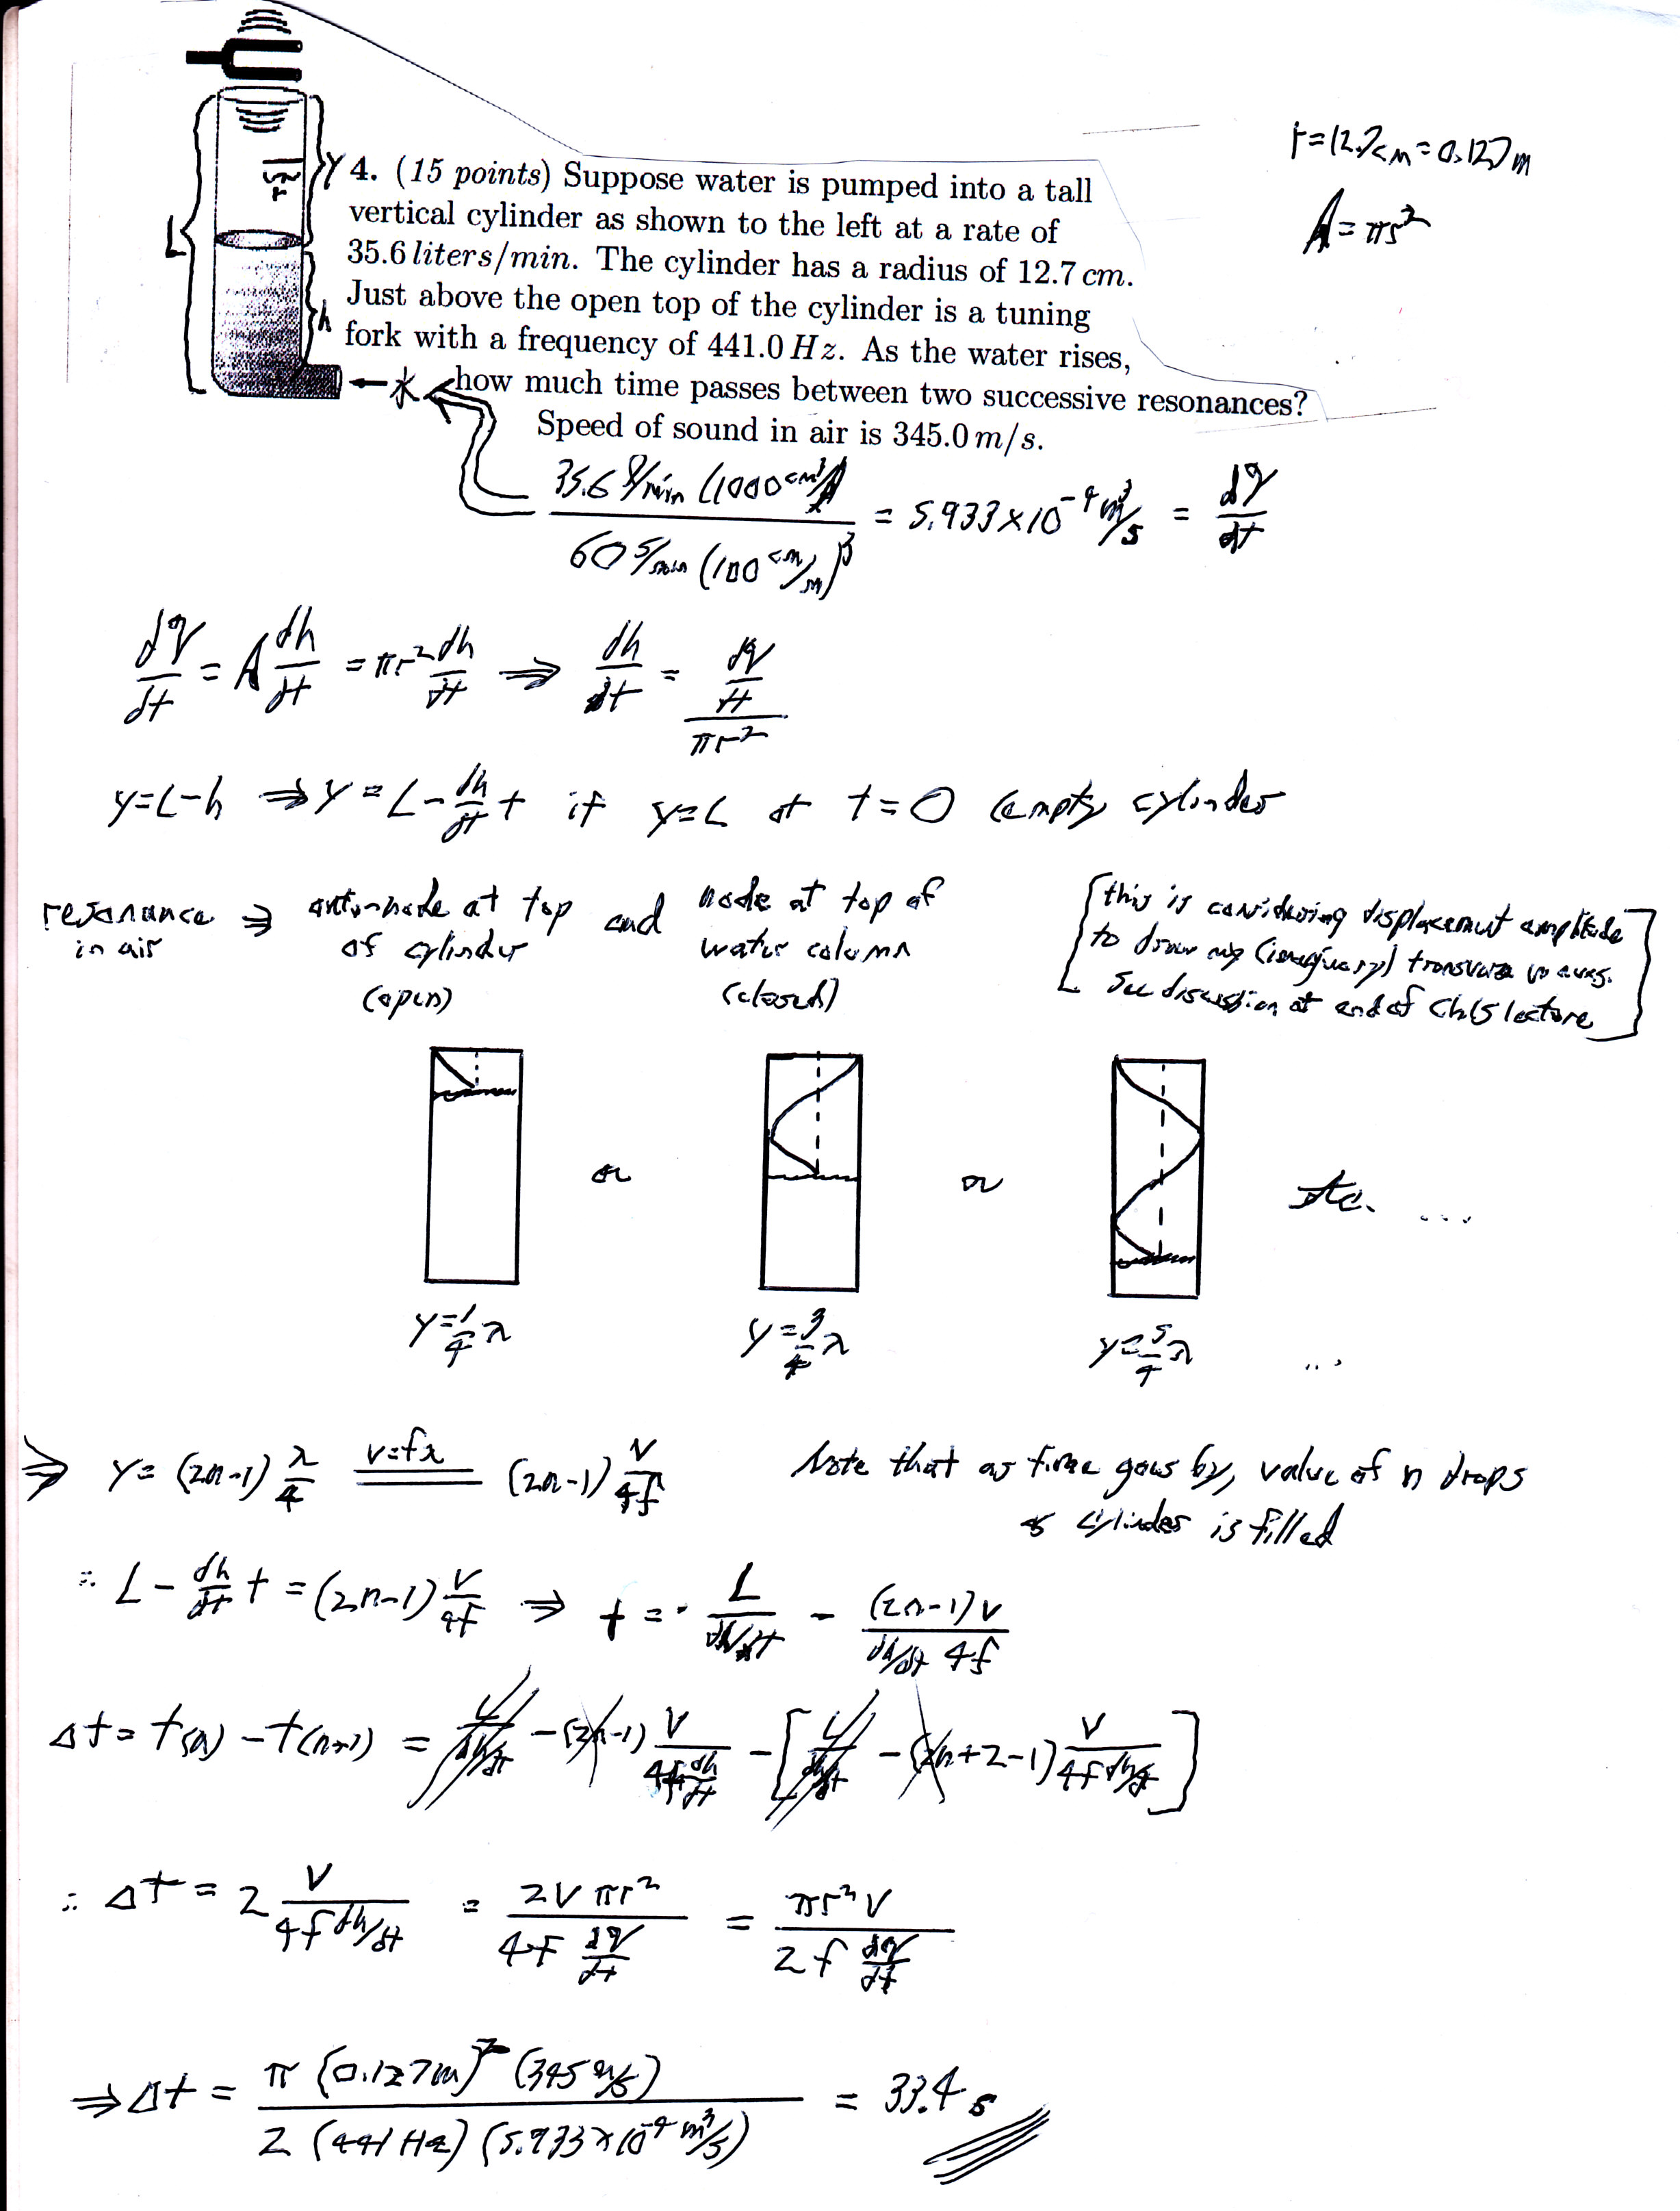 r=12.7cm=0.127m
A=πr²
L
y
r
h
4. (15 points) Suppose water is pumped into a tall
vertical cylinder as shown to the left at a rate of
35.6 liters/min. The cylinder has a radius of 12.7 cm.
Just above the open top of the cylinder is a tuning
fork with a frequency of 441.0 Hz. As the water rises,
水 how much time passes between two successive resonances?
Speed of sound in air is 345.0 m/s.
35.6 ℓ/min (1000 cm³/ℓ) / 60 s/min (100 cm/m)³ = 5.933×10⁻⁴ m³/s = dV/dt
dV/dt = A dh/dt = πr² dh/dt ⇒ dh/dt = (dV/dt)/(πr²)
y=L-h ⇒ y = L - dh/dt t if y=L at t=0 (empty cylinder
resonance in air ⇒ anti-node at top of cylinder (open) and node at top of water column (closed)
[this is considering displacement amplitude
to draw my (imaginary) transverse waves.
See discussion at end of Ch15 lecture]
or or etc. ...
y=1/4 λ y=3/4 λ y=5/4 λ ...
⇒ y= (2n-1) λ/4 =(v=fλ)= (2n-1) v/4f
Note that as time goes by, value of n drops
as cylinder is filled
∴ L - dh/dt t = (2n-1) v/4f ⇒ t = L/(dh/dt) - (2n-1)v/(dh/dt 4f)
Δt = t(n) - t(n+1) = L/(dh/dt) - (2n-1) v/(4f dh/dt) - [L/(dh/dt) - (2n+2-1) v/(4f dh/dt)]
∴ Δt = 2 v/(4f dh/dt) = 2vπr²/(4f dV/dt) = πr²v/(2f dV/dt)
⇒ Δt = π (0.127m)² (345 m/s) / 2 (441 Hz) (5.933×10⁻⁴ m³/s) = 33.4 s